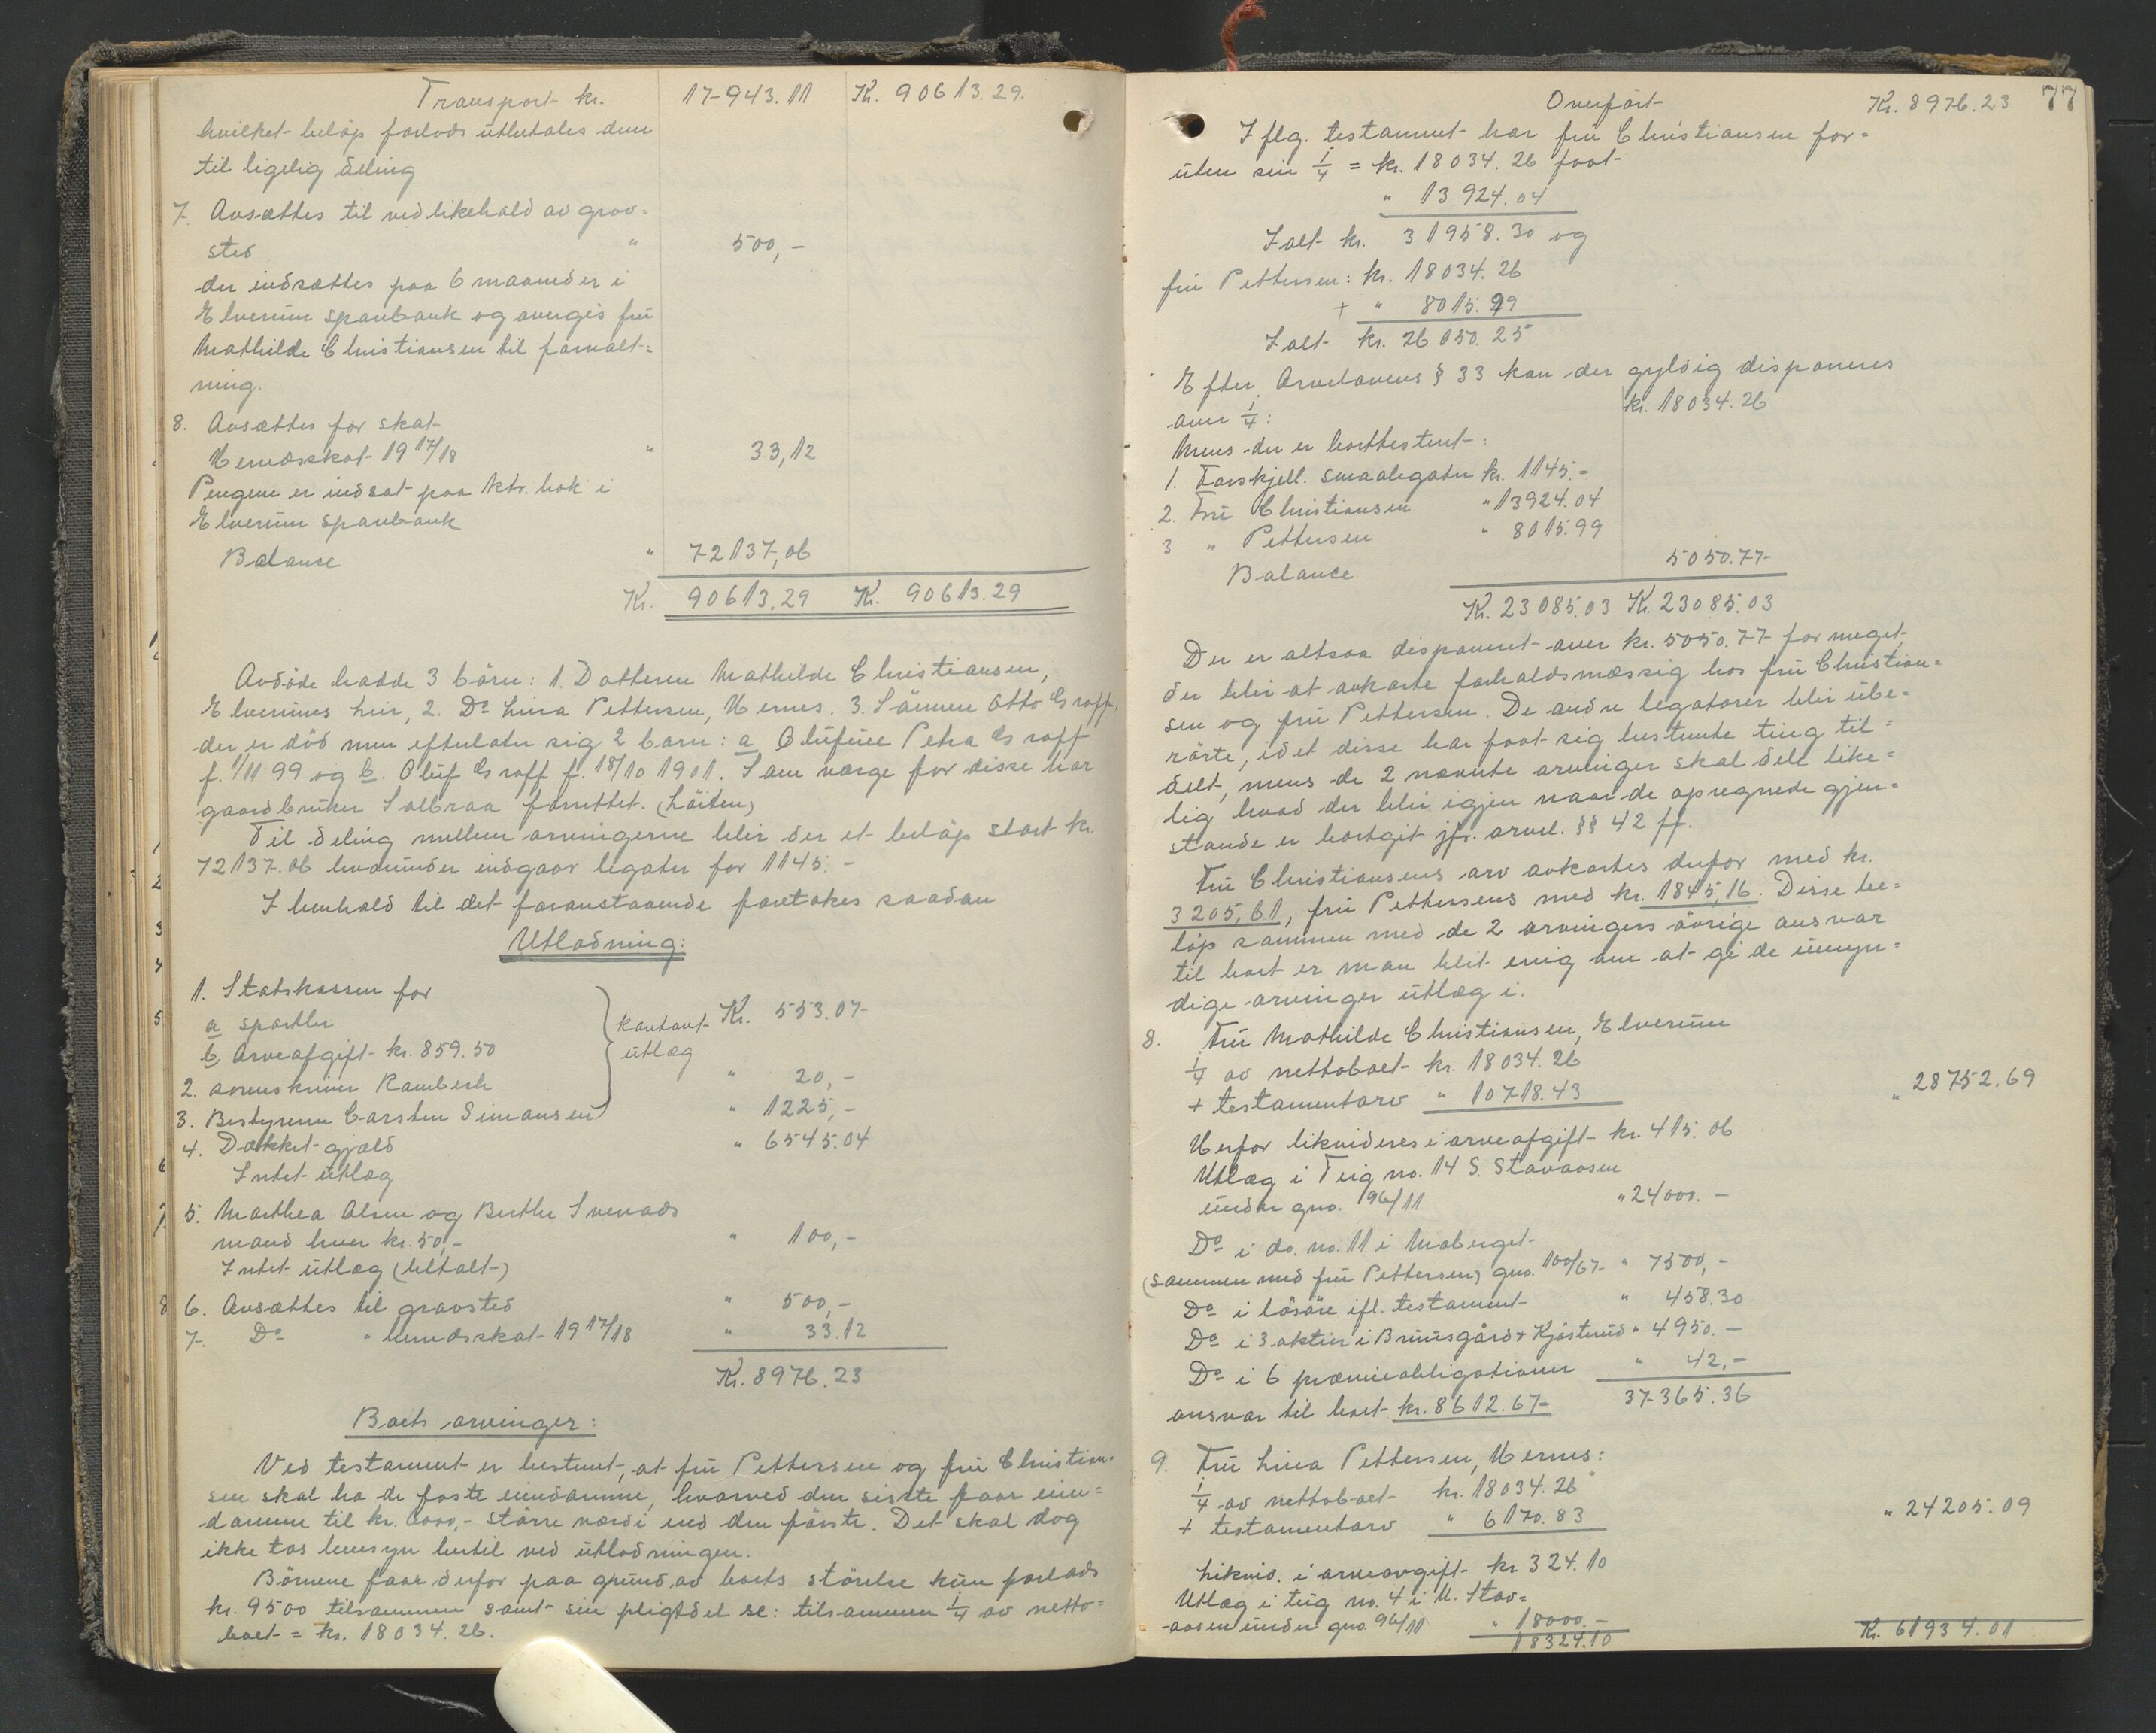 Transport kr. 17943.11 Kr. 90613.29.
hvilket beløp forlods utbetales dem
til ligelig deling
7. Avsættes til vedlikehald av grav=
sted " 500,-
der indsættes paa 6 maaneder i
Elverum sparebank og overgis fru
Mathilde Christiansen til forvalt=
ning.
8. Avsættes for skat
Hernesskat 19 17/18 " 33,12
Pengene er indsat paa ktr. bok i
Elverum sparebank
Balance " 72137,06
Kr. 90613.29 Kr. 90613.29
Avdøde hadde 3 børn: 1. Datteren Mathilde Christiansen,
Elverum, 2. Do Lina Pettersen, Hernes. 3. Sønnen Otto Graff,
der er død men efterlater sig 2 barn: a Olufine Petra Graff
f. 1/11 99 og b. Oluf Graff f. 18/10 1901. Som verge for disse har
gaardbruker Solbraa forrettet. (Løiten)
Til deling mellem arvingerne blir der et beløp stort kr.
72137.06 hvorunder indgaar legater for 1145.-
I henhold til det foranstaaende foretakes saadan
Utlodning:
1. Statskassen for
a sportler
b, Arveafgift kr. 859.50
kontant utlæg Kr. 553.07
2. sorenskriver Rambech " 20,-
3. Bestyreren Carsten Simonsen " 1225,-
4. Dækket gjæld " 6545.04
Intet utlæg
5. Marthea Olsen og Berthe Svenads
mand hver kr. 50,- " 100,-
Intet utlæg (betalt)
6. Avsættes til gravsted " 500,-
7. Do " herredsskat 19 17/18 " 33.12
Kr. 8976.23
Boets arvinger:
Ved testament er bestemt, at fru Pettersen og fru Christian=
sen skal ha de faste eiendomme, hvorved den siste faar eien=
domme til kr. 6000,- større værdi end den første. Det skal dog
ikke tas hensyn hertil ved utlodningen.
Børnene faar derfor paa grund av boets størelse kun forlods
kr. 9500 tilsammen samt sin pligtdel se: tilsammen 1/4 av netto=
boet = kr. 18034.26.
77
Overført Kr. 8976.23
I flg. testament har fru Christiansen for=
uten sin 1/4 = kr. 18034.26 faat
" 13924.04
Ialt kr. 31958.30 og
fru Pettersen: kr. 18034.26
+ " 8015.99
Ialt kr. 26050.25
Efter Arvelovens § 33 kan der gyldig disponeres
over 1/4: kr. 18034.26
Mens der er borttestent:
1. Forskjell. smaalegater kr. 1145.-
2. Fru Christiansen " 13924.04
3 " Pettersen " 8015.99
Balance 5050.77
Kr. 23085.03 Kr. 23085.03
Der er altsaa disponeret over kr. 5050.77 for meget,
der blir at avkorte forholdsmæssig hos fru Christian=
sen og fru Pettersen. De andre legatorer blir ube=
rørte, idet disse har faat sig bestemte ting til=
delt, mens de 2 nævnte arvinger skal dele like=
lig hvad der blir igjen naar de opregnede gjen=
stande er bortgit jfr. arvel. §§ 42 ff.
Fru Christiansens arv avkortes derfor med kr.
3205,61, fru Pettersens med kr. 1845,16. Disse be=
løp sammen med de 2 arvingers øvrige ansvar
til boet er man blit enig om at gi de umyn=
dige arvinger utlæg i.
8. Fru Mathilde Christiansen, Elverum
1/4 av nettoboet kr. 18034.26
+ testamentarv " 10718.43 " 28752.69
Herfor likvideres i arveafgift kr. 415.06
Utlæg i Teig no. 14 S. Stavaasen
under gno. 96/11 " 24000.-
Do i do. no. 11 i Moberget
(sammen med fru Pettersen) gno. 100/67 " 7500,-
Do i løsøre ifl. testament " 458.30
Do i 3 aktier i Bruusgård + Kjøsterud " 4950.-
Do i 6 præmieobligationer " 42,-
ansvar til boet kr. 8612.67 37365.36
9. Fru Lina Pettersen, Hernes:
1/4 av nettoboet kr. 18034.26
+ testamentarv " 6170.83 " 24205.09
Likvid. i arveavgift kr 324.10
Utlæg i teig no. 4 i N. Stav=
aasen under gno. 96/11 " 18000.-
18324.10 Kr. 61934.01